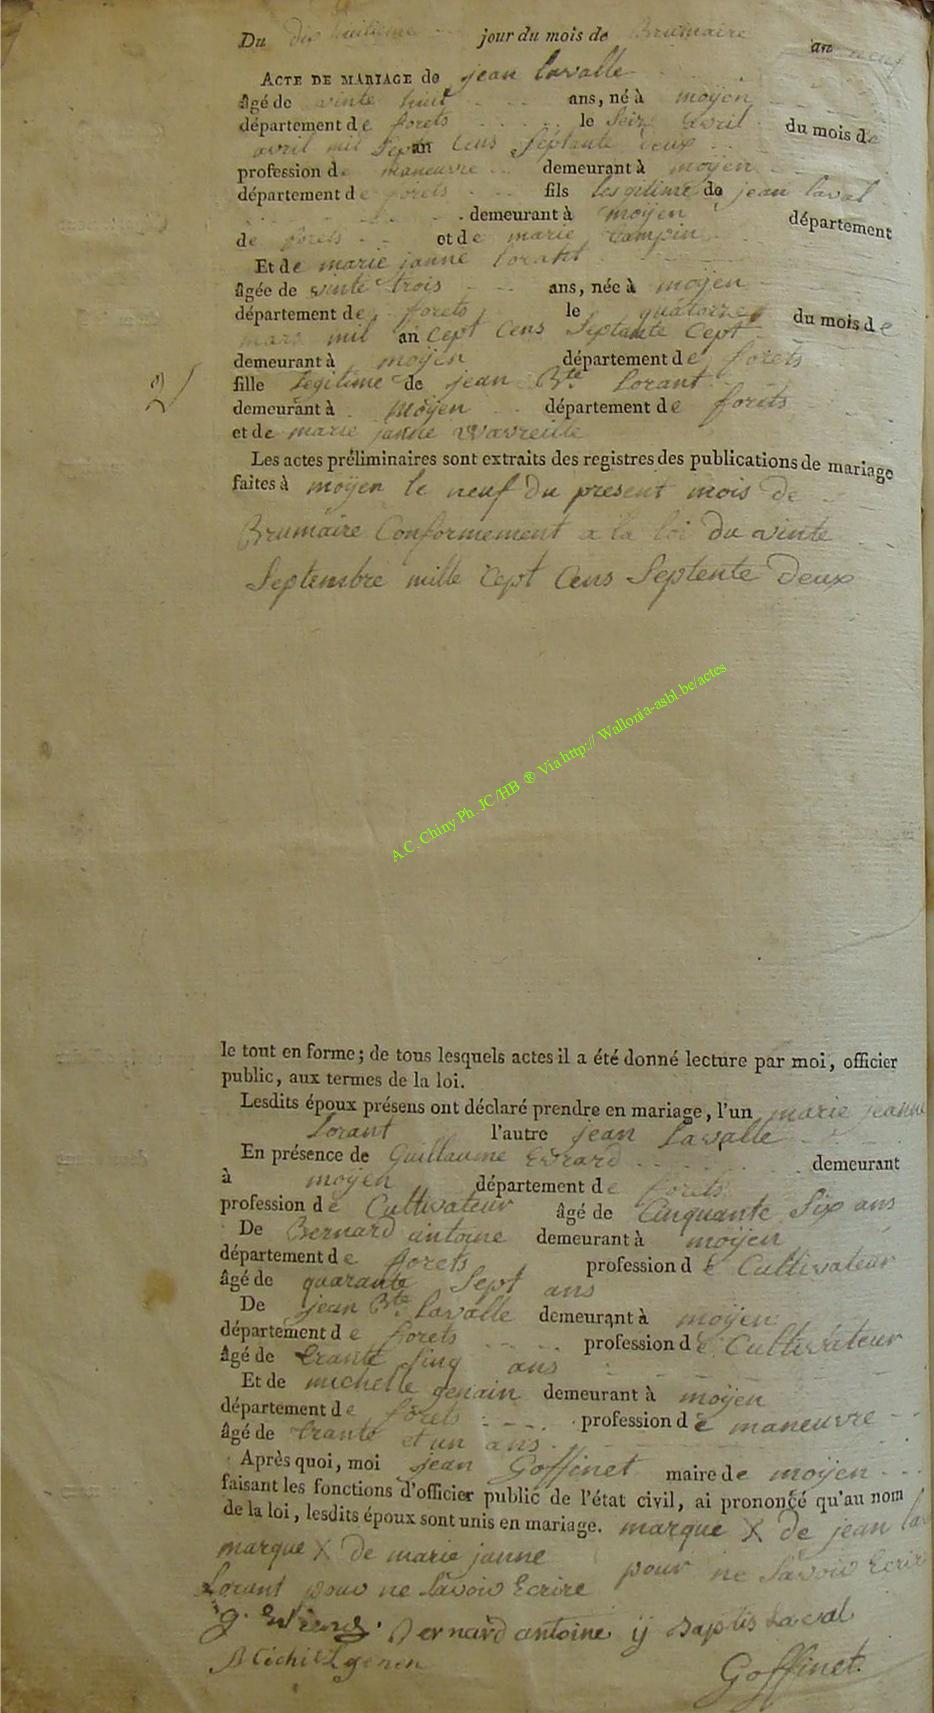 Du dix huitieme jour du mois de Brumaire an neuf
ACTE DE MARIAGE de jean lavalle
âgé de vinte huit ans, né à moÿen
département de forets le seiz avril du mois de
avril mil sept an cens septante deux
profession de maneuvre demeurant à moÿen
département de forets fils lesgitime de jean laval
demeurant à moÿen département
de forets et de marie
Et de marie janne lorant
âgée de vinte trois ans, née à moyen
département de forets le quatorze du mois de
mars mil an cept cens septante cept
demeurant à moÿen département de forets
fille Legitime de jean Bte Lorant
demeurant à Moÿen département de forets
et de marie janne wavreille
Les actes préliminaires sont extraits des registres des publications de mariage
faites à moÿen le neuf du present mois de
Brumaire Conformement a la loi du vinte
Septembre mille cept Cens Septente deux
2/
A.C. Chiny Ph. JC/HB ® Via http:// Wallonia-asbl.be/actes
le tout en forme; de tous lesquels actes il a été donné lecture par moi, officier
public, aux termes de la loi.
Lesdits époux présens ont déclaré prendre en mariage, l'un marie jeanne
Lorant l'autre jean Lavalle
En présence de Guillaume Evrard demeurant
à moÿen département de forets
profession de Cultivateur âgé de Cinquante Six ans
De Bernard antoine demeurant à moÿen
département de forets profession de Cultivateur
âgé de quarante Sept ans
De jean Bte Lavalle demeurant à moÿen
département de forets profession de Cultivateur
âgé de trante sinq ans
Et de michelle genain demeurant à moÿen
département de forets profession de maneuvre
âgé de trante et un ans
Après quoi, moi jean Goffinet maire de moÿen
faisant les fonctions d'officier public de l'état civil, ai prononcé qu'au nom
de la loi, lesdits époux sont unis en mariage. marque X de jean la
marque X de marie janne pour ne savoir Ecrir
Lorant pour ne savoir Ecrire
g. Bernard antoine ij baptis Laval
Goffinet